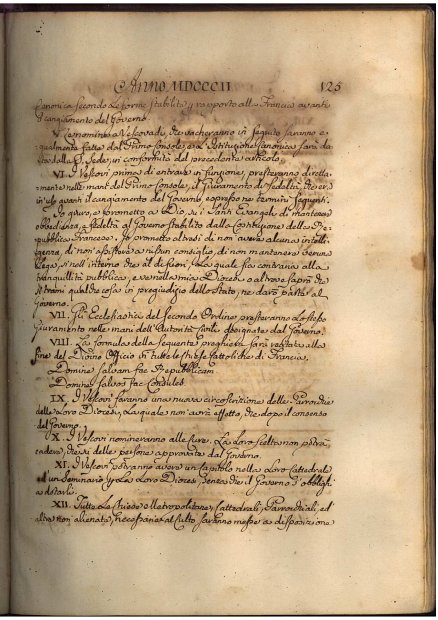 Anno MDCCCII 125
Canonica secondo le forme stabilite per rapporto alla Francia avanti
il cangiamento del Governo.
V. Le nomine a Vescovadi, che vacheranno in seguito saranno e-
gualmente fatte dal Primo Console, e l'Istituzione Canonica sarà da-
ta dalla S. Sede, in conformità del precedente articolo.
VI. I Vescovi prima di entrare in funzione, presteranno diretta-
mente nelle mani del Primo Console, il Giuramento di Fedeltà, che era
in uso avanti il cangiamento del Governo, espresso ne' termini seguenti.
Io giuro, e prometto a Dio, su i Santi Evangelj di mantenere
obbedienza, e fedeltà al Governo stabilito dalla Costituzione della Re-
pubblica Francese. Io prometto altresì di non avere alcuna intelli-
genza, di non assistere a nissun consiglio, di non mantenere veruna
Lega, o nell'interno, che al di fuori, la quale sia contraria alla
tranquillità pubblica, e se nella mia Diocesi, o altrove saprò che
si trami qualche cosa in pregiudizio dello Stato, ne darò parte al
Governo.
VII. Gli Ecclesiastici del secondo Ordine presteranno lo stesso
Giuramento nelle mani dell'Autorità Civili designate dal Governo.
VIII. La formola della seguente preghiera sarà recitata alla
fine del Divino Officio in tutte le chiese Cattoliche di Francia.
Domine salvam fac Rempublicam
Domine salvos fac Consules
IX. I Vescovi faranno una nuova circoscrizione delle Parrochie
delle loro Diocesi, la quale non avrà effetto, che dopo il consenso
del Governo.
X. I Vescovi nomineranno alle Cure. La loro scelta non potrà
cadere, che su delle persone approvate dal Governo.
XI. I Vescovi potranno avere un Capitolo nella loro Cattedrale
ed un Seminario per la loro Diocesi, senza che il Governo s'obblighi
a dotarli.
XII. Tutte le Chiese Metropolitane, Cattedrali, Parrochiali, ed
altre non alienate, necessarie al Culto saranno messe a disposizione